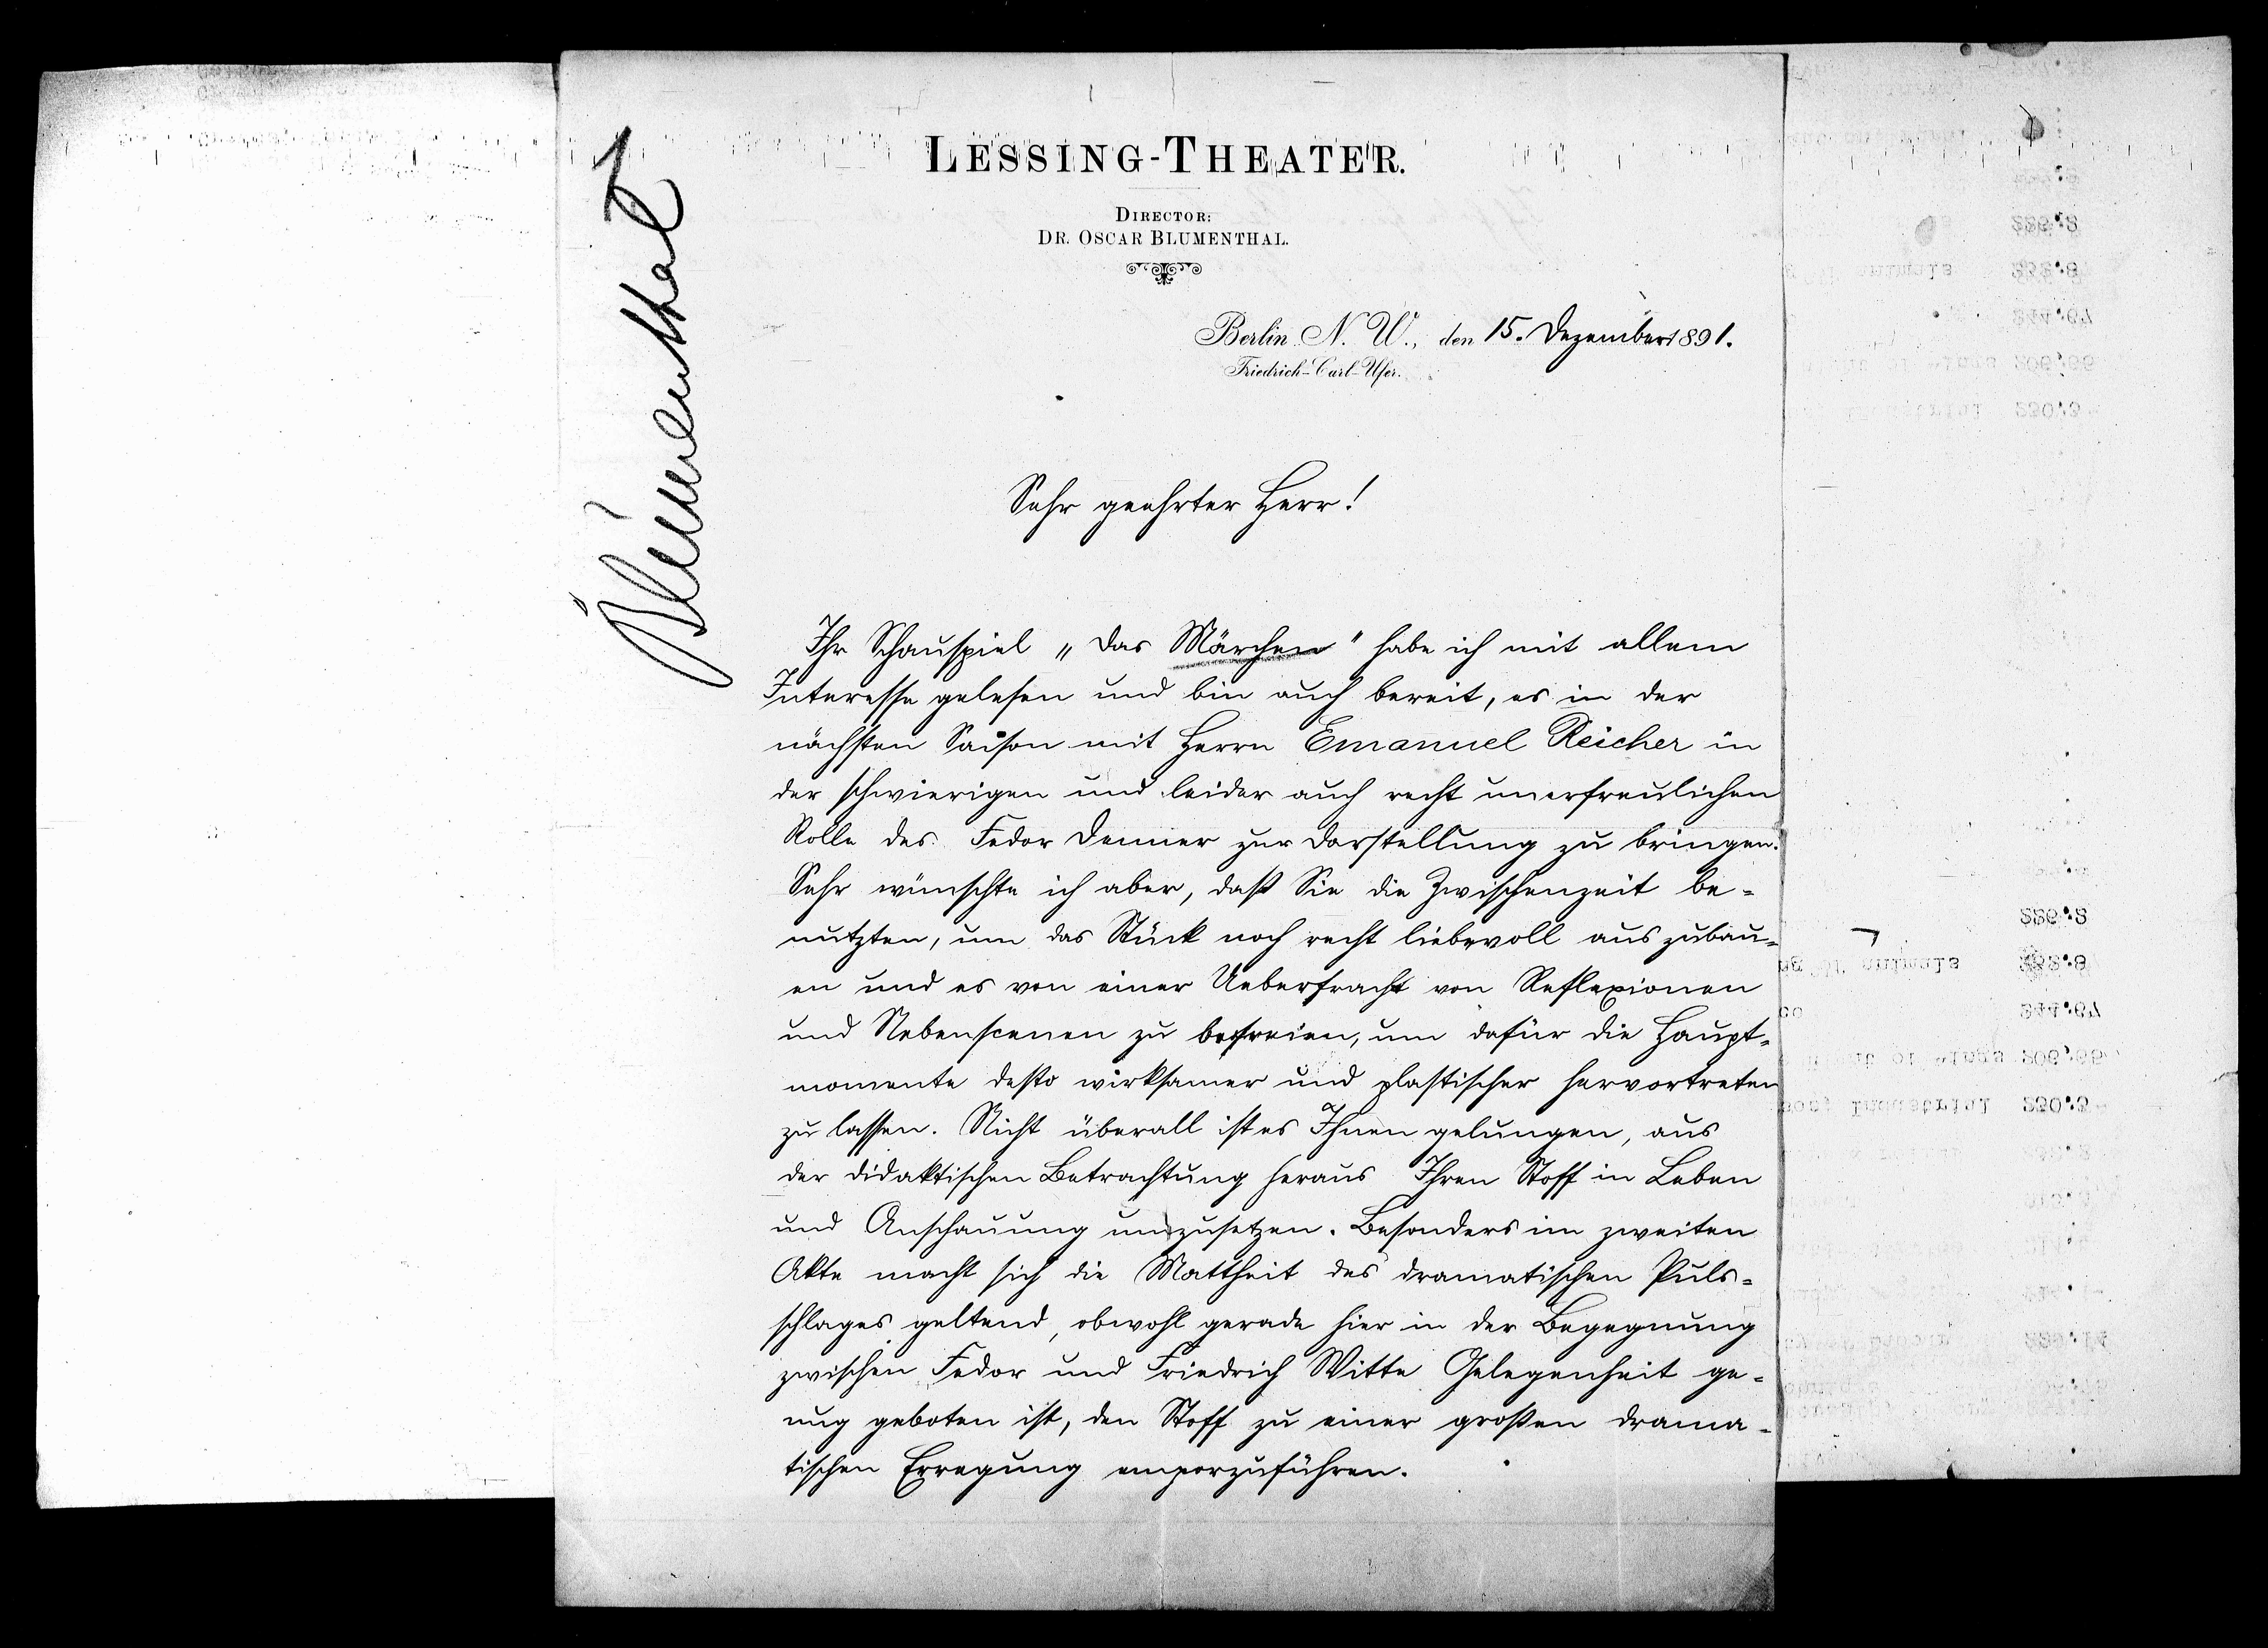 Blumenthal
LESSING-THEATER.
DIRECTOR:
DR. OSCAR BLUMENTHAL.
Berlin N. W., den 15. Dezember 1891.
Friedrich-Carl-Ufer.
Sehr geehrter Herr!
Ihr Schauspiel „Das Märchen" habe ich mit allem
Interesse gelesen und bin auch bereit, es in der
nächsten Saison mit Herrn Emanuel Reicher in
der schwierigen und leider auch recht unerfreulichen
Rolle des Fedor Denner zur Darstellung zu bringen.
Sehr wünschte ich aber, daß Sie die Zwischenzeit be-
nutzten, um das Stück noch recht liebevoll auszubau-
en und es von einer Ueberfracht von Reflexionen
und Nebenscenen zu befreien, um dafür die Haupt-
momente desto wirksamer und plastischer hervortreten
zu lassen. Nicht überall ist es Ihnen gelungen, aus
der didaktischen Betrachtung heraus Ihren Stoff in Leben
und Anschauung umzusetzen. Besonders im zweiten
Akte macht sich die Mattheit des dramatischen Puls-
schlages geltend, obwohl gerade hier in der Begegnung
zwischen Fedor und Friedrich Witte Gelegenheit ge-
nug geboten ist, den Stoff zu einer großen drama-
tischen Erregung emporzuführen.